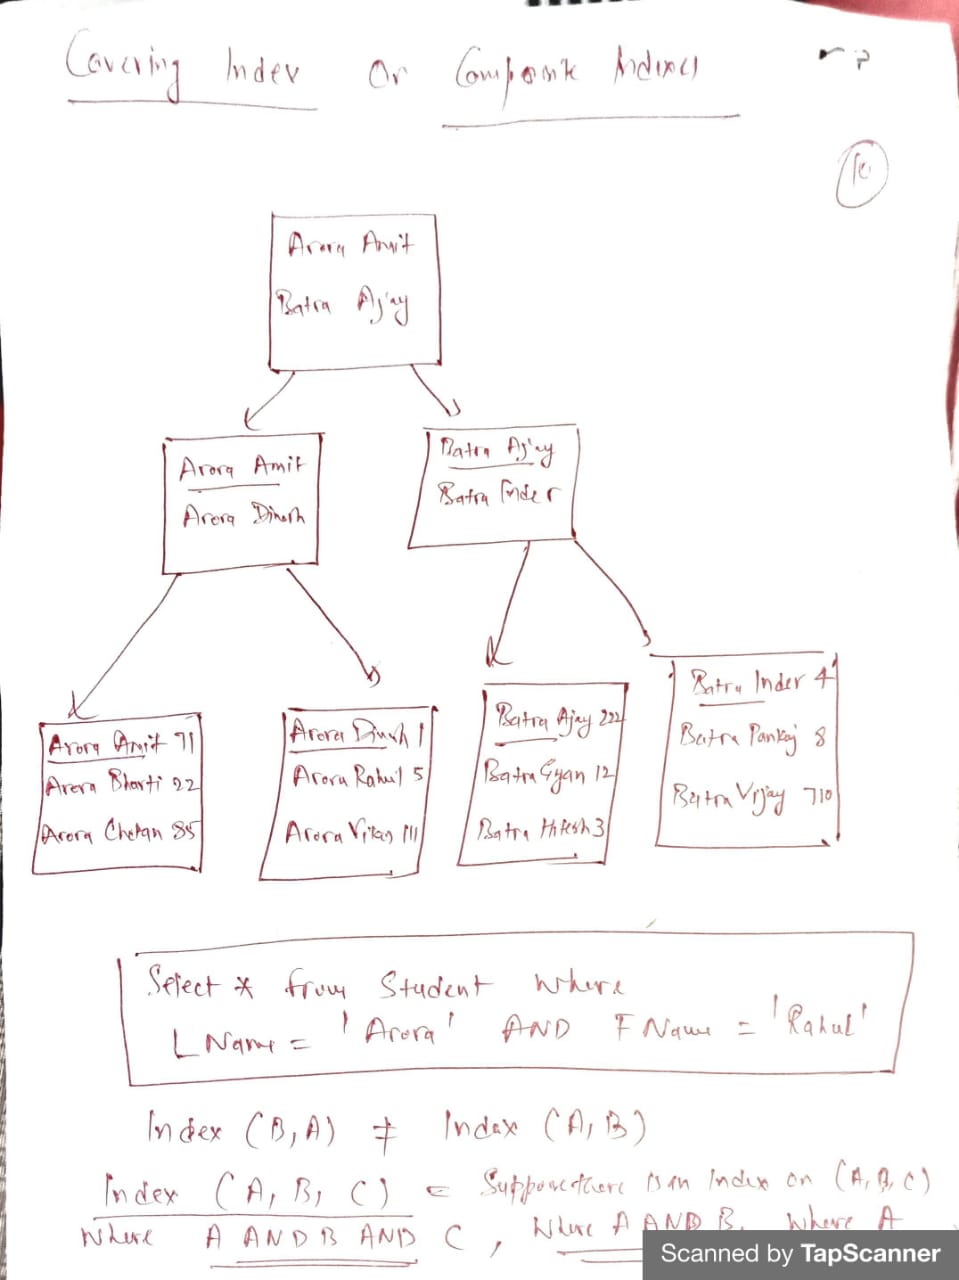 Covering Index Or Composite Indexes
Arora Amit
Batra Ajay
Arora Amit
Arora Dinesh
Batra Ajay
Batra Inder
Arora Amit 71
Arora Bharti 22
Arora Chetan 85
Arora Dinesh 1
Arora Rahul 5
Arora Vikas 111
Batra Ajay 222
Batra Gyan 12
Batra Hitesh 3
Batra Inder 4
Batra Pankaj 8
Batra Vijay 710
Select * from Student where
LName = 'Arora' AND FName = 'Rahul'
Index (B, A) ≠ Index (A, B)
Index (A, B, C) = Suppose there is an Index on (A, B, C)
Where A AND B AND C, Where A AND B, Where A
Scanned by TapScanner